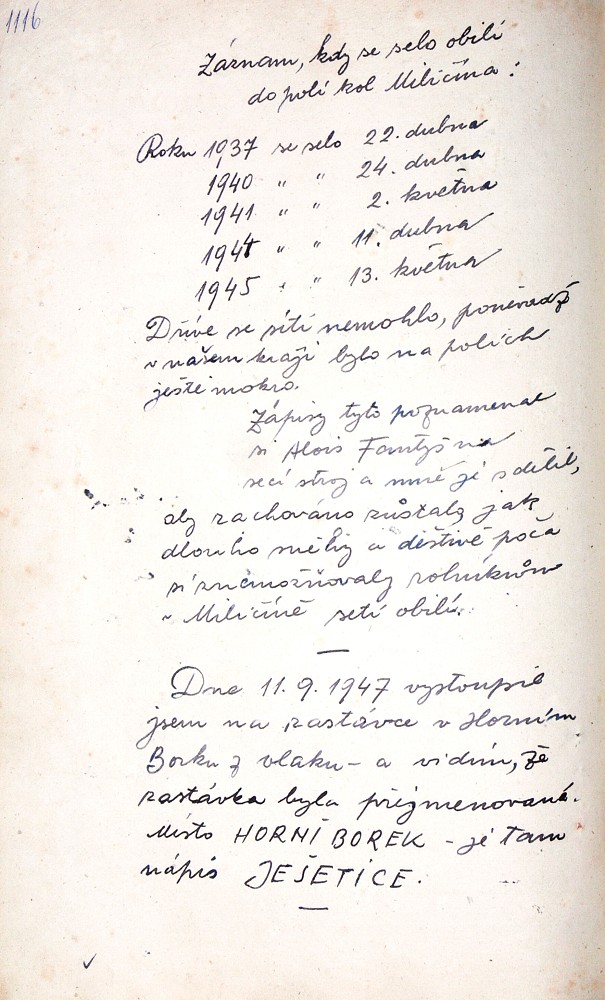 1116
Záznam, kdy se selo obilí
do polí kol Miličína:
Roku 1937 se selo 22. dubna
1940 " " 24. dubna
1941 " " 2. května
1944 " " 11. dubna
1945 " " 13. května
Dříve se síti nemohlo, poněvadž
v našem kraji bylo na polích
ještě mokro.
Zápisy tyto poznamenal
si Alois Fantyš na
secí stroj a mně je sdělil,
aby zachováno zůstalo jak
dlouho sněhy a deštivé poča
sí znemožňovaly rolníkům
v Miličíně setí obilí.
—
Dne 11. 9. 1947 vystoupil
jsem na zastávce v Horním
Borku z vlaku – a vidím, že
zastávka byla přejmenovaná.
Místo HORNÍ BOREK – je tam
nápis JEŠETICE.
—